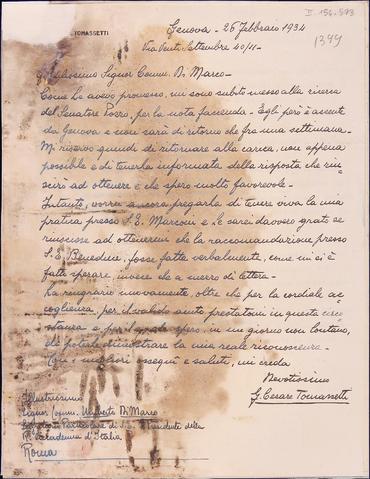 II 156.573
TOMASSETTI
Genova - 26 Febbraio 1934
1349
Via Venti Settembre 40/11 -
Gentilissimo Signor Comm. Di Marco -
Come le avevo promesso, mi sono subito messo alla ricerca
del Senatore per la nota faccenda - Egli però è assente
da Genova e non sarà di ritorno che fra una settimana -
Mi riservo quindi di ritornare alla carica, non appena
possibile e di tenerla informata della risposta che riu=
scirò ad ottenere e che spero molto favorevole -
Intanto, vorrei ancora pregarla di tenere viva la mia
pratica presso S. E. Marconi e Le sarei davvero grato se
riuscisse ad ottenermi che la raccomandazione presso
S. E. Beneduce, fosse fatta verbalmente, come mi si è
fatto sperare, invece che a mezzo di lettera -
La ringrazio nuovamente, oltre che per la cordiale ac=
coglienza, per il valido aiuto prestatomi in questa circo
stanza e per il spero, in un giorno non lontano,
di poterle dimostrare la mia reale riconoscenza -
Con i migliori ossequi e saluti, mi creda
Devotissimo
G. Cesare Tomassetti
Illustrissimo
Signor Comm. Umberto Di Marco
Segretario Particolare di S. E. il Presidente della
R. Accademia d'Italia
Roma